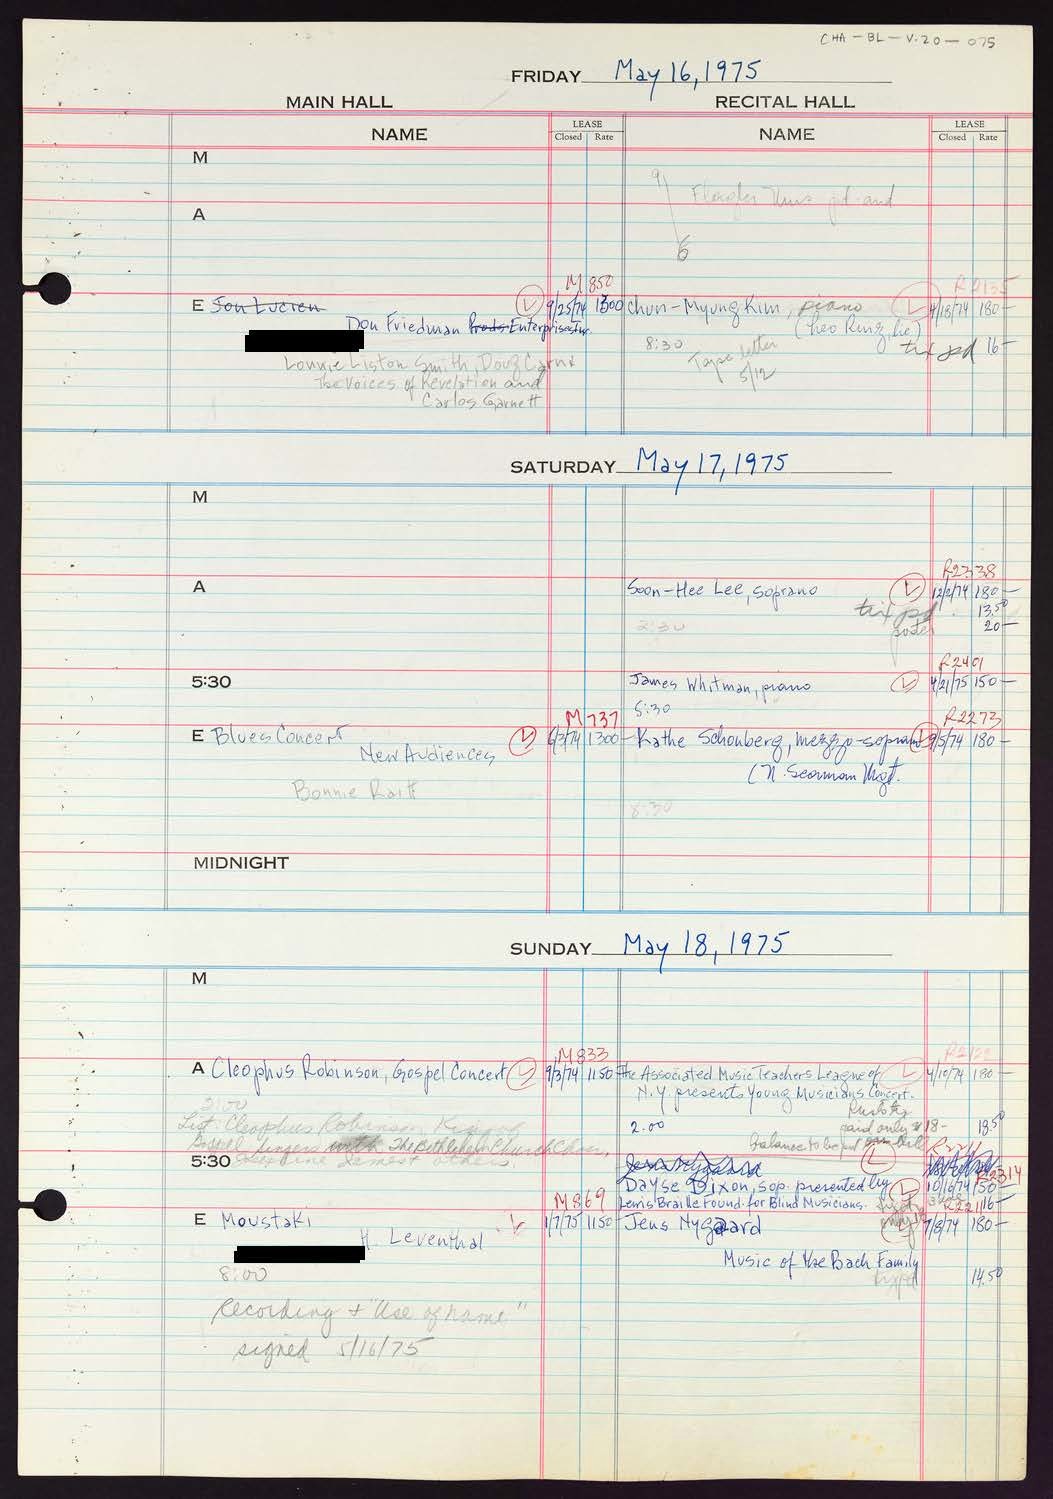 CHA-BL-V.20-075
FRIDAY May 16, 1975
MAIN HALL RECITAL HALL
NAME LEASE Closed Rate NAME LEASE Closed Rate
M
9
A
6
M 850
E Jon Lucien 9/25/74 1300 Chun-Myung Kim, piano 180-
Don Friedman Prods Enterprises Inc.
8:30 tix pd 16-
Lonnie Liston Smith, Doug Carn & Tape letter
The Voices of Revelation and 5/12
Carlos Garnett
SATURDAY May 17, 1975
M
R2338
A Soon-Hee Lee, soprano 12/2/74 180-
tix pd. 13.50
2:30 poster 20-
R2401
5:30 James Whitman, piano 4/21/75 150-
5:30
M 737 R2273
E Blues Concert 6/3/74 1300- Kathe Schonberg, mezzo-soprano 9/5/74 180-
New Audiences (N. Seaman Mgt.
Bonnie Raitt
8:30
MIDNIGHT
SUNDAY May 18, 1975
M
M 833
A Cleophus Robinson, Gospel Concert 9/3/74 1150 The Associated Music Teachers League of 4/10/74 180-
N.Y. presents Young Musicians Concert.
2:00
List: Cleophus Robinson, paid only 18- 18.50
2.00
Gospel Singers with The Bethlehem Church Choir, balance to be pd
5:30
Dayse Dixon, sop. presented by 10/16/74 150- R2314
M 869 Lewis Braille Found. for Blind Musicians. 16-
E Moustaki 1/7/75 1150- Jens Nygaard 7/8/74 180-
H. Leventhal
Music of the Bach Family
8:00 14.50
Recording & "Use of name"
signed 5/16/75